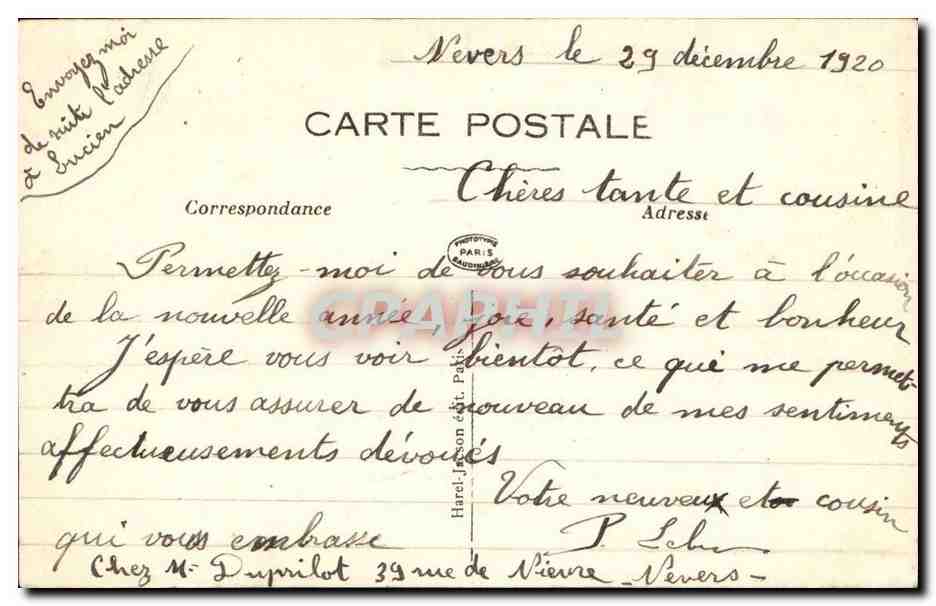 Nevers le 29 décembre 1920
Envoyez moi
de suite l'adresse
à Lucien
CARTE POSTALE
Chères tante et cousine
Correspondance
Adresse
PHOTOTYPIE
PARIS
BAUDINIÈRE
Permettez-moi de vous souhaiter à l'occasion
de la nouvelle année, joie, santé et bonheur
J'espère vous voir bientôt, ce qui me permet-
tra de vous assurer de nouveau de mes sentiments
affectueusements dévoués
Votre neuveux et cousin
qui vous embrasse
P.
Chez Mr Duprilot 39 rue de Nièvre - Nevers -
Harel-Jacson édit. Paris
GRAPHTL